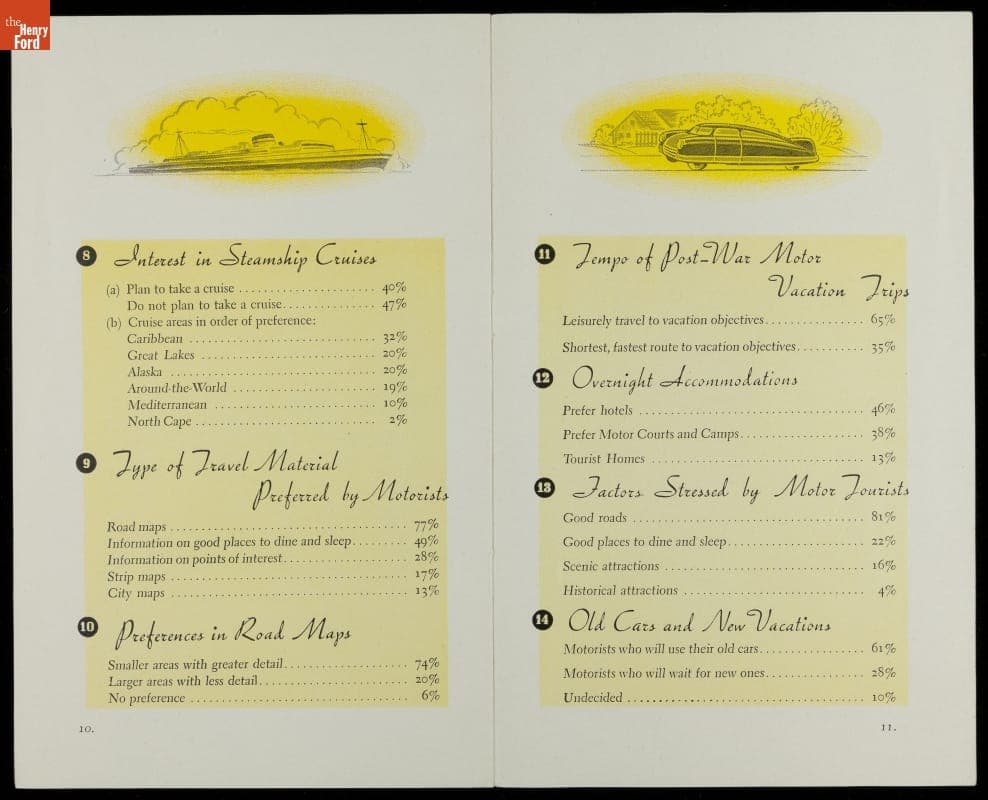 the
Henry
Ford
8 Interest in Steamship Cruises
(a) Plan to take a cruise ........................ 40%
Do not plan to take a cruise................ 47%
(b) Cruise areas in order of preference:
Caribbean ................................ 32%
Great Lakes .............................. 20%
Alaska ................................... 20%
Around-the-World ......................... 19%
Mediterranean ............................ 10%
North Cape ............................... 2%
9 Type of Travel Material
Preferred by Motorists
Road maps ........................................ 77%
Information on good places to dine and sleep......... 49%
Information on points of interest..................... 28%
Strip maps ........................................ 17%
City maps ......................................... 13%
10 Preferences in Road Maps
Smaller areas with greater detail..................... 74%
Larger areas with less detail......................... 20%
No preference ..................................... 6%
10.
11 Tempo of Post-War Motor
Vacation Trips
Leisurely travel to vacation objectives................ 65%
Shortest, fastest route to vacation objectives........... 35%
12 Overnight Accommodations
Prefer hotels ..................................... 46%
Prefer Motor Courts and Camps..................... 38%
Tourist Homes .................................... 13%
13 Factors Stressed by Motor Tourists
Good roads ....................................... 81%
Good places to dine and sleep....................... 22%
Scenic attractions .................................. 16%
Historical attractions ............................... 4%
14 Old Cars and New Vacations
Motorists who will use their old cars.................. 61%
Motorists who will wait for new ones................. 28%
Undecided ........................................ 10%
11.